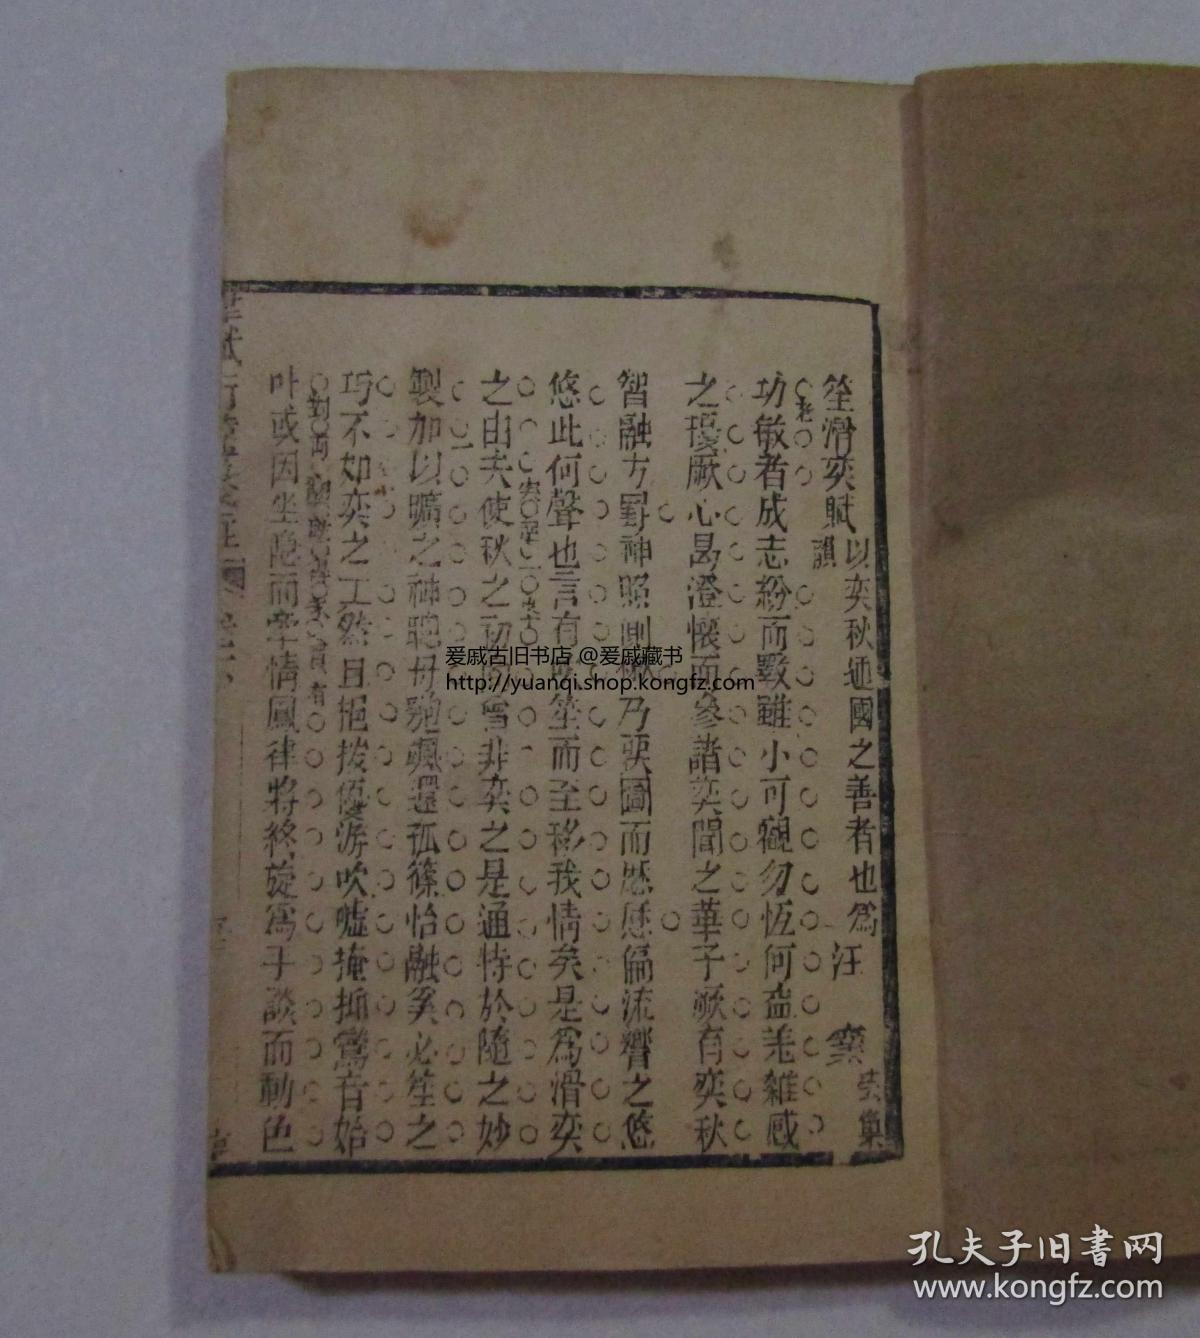 笙滑奕賦 以奕秋通國之善者也爲韻 汪
功敏者成志紛而斁雖小可觀勿恆何益羌雜感
之擾厥心曷澄懷而參諸奕聞之華子厥有奕秋
智融方罫神照則楸乃 圖而 流響之悠
悠此何聲也言有 笙而至移我情矣是爲滑奕
之由夫使秋之初 非奕之是通恃於隨之妙
製加以曠之神聰毋 孤篠怡融奚必笙之
巧不如奕之工然且挹拔優游吹噓掩抑鶯音始
叶或因坐隱而 情鳳律將終旋爲手談而動色
爱戚古旧书店 @爱戚藏书
http://yuanqi.shop.kongfz.com
孔夫子旧書网
www.kongfz.com